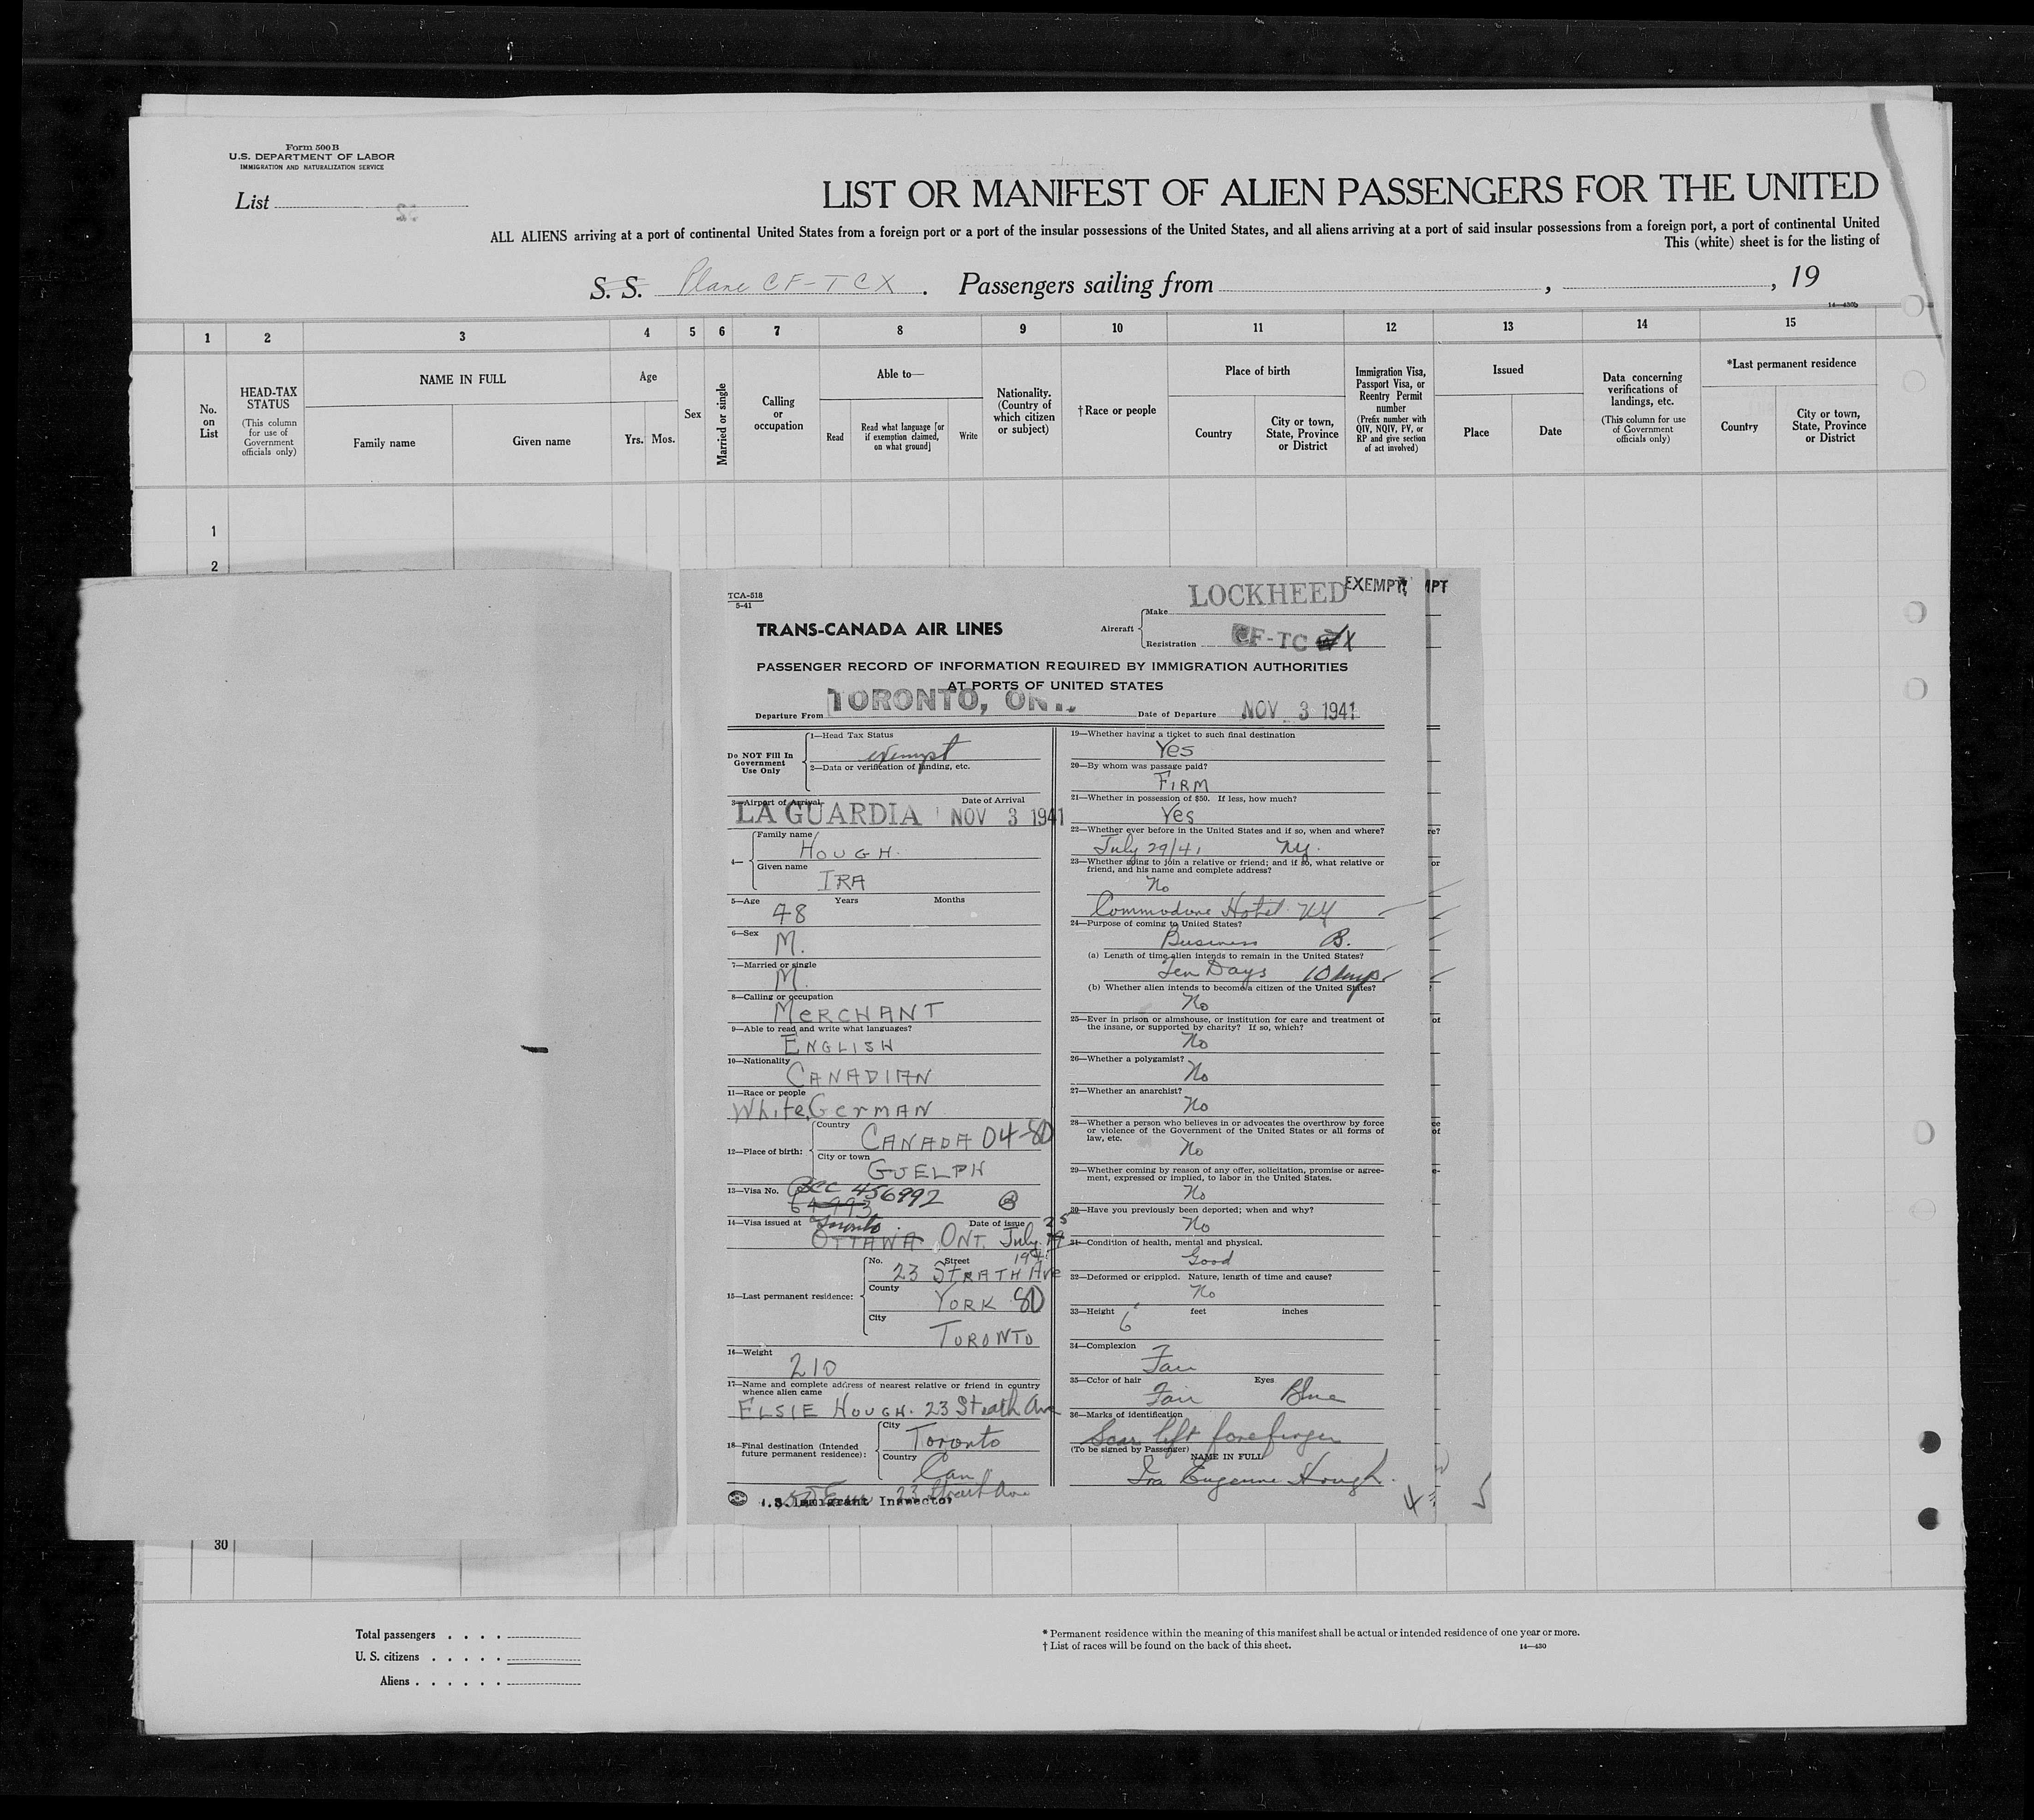 Form 500 B
U.S. DEPARTMENT OF LABOR
IMMIGRATION AND NATURALIZATION SERVICE
List
LIST OR MANIFEST OF ALIEN PASSENGERS FOR THE UNITED
ALL ALIENS arriving at a port of continental United States from a foreign port or a port of the insular possessions of the United States, and all aliens arriving at a port of said insular possessions from a foreign port, a port of continental United
This (white) sheet is for the listing of
S. S. Plane CF-TCX. Passengers sailing from , , 19
14—430b
1 2 3 4 5 6 7 8 9 10 11 12 13 14 15
No. on List
HEAD-TAX STATUS
(This column for use of Government officials only)
NAME IN FULL
Family name
Given name
Age
Yrs. Mos.
Sex
Married or single
Calling or occupation
Able to—
Read
Read what language [or if exemption claimed, on what ground]
Write
Nationality. (Country of which citizen or subject)
†Race or people
Place of birth
Country
City or town, State, Province or District
Immigration Visa, Passport Visa, or Reentry Permit number
(Prefix number with QIV, NQIV, PV, or RP and give section of act involved)
Issued
Place
Date
Data concerning verifications of landings, etc.
(This column for use of Government officials only)
*Last permanent residence
Country
City or town, State, Province or District
1
2
TCA-518
5-41
TRANS-CANADA AIR LINES
Aircraft
Make LOCKHEED
EXEMPT
MPT
Registration CF-TC X
PASSENGER RECORD OF INFORMATION REQUIRED BY IMMIGRATION AUTHORITIES
AT PORTS OF UNITED STATES
Departure From TORONTO, ONT.
Date of Departure NOV 3 1941
Do NOT Fill In Government Use Only
1—Head Tax Status
exempt
2—Data or verification of landing, etc.
3—Airport of Arrival
Date of Arrival
LA GUARDIA NOV 3 1941
4—
Family name
HOUGH.
Given name
IRA
5—Age Years Months
48
6—Sex
M.
7—Married or single
M.
8—Calling or occupation
MERCHANT
9—Able to read and write what languages?
ENGLISH
10—Nationality
CANADIAN
11—Race or people
White, GERMAN
12—Place of birth:
Country
CANADA 04-80
City or town
GUELPH
13—Visa No. BCC 456992
14—Visa issued at Toronto
Date of issue 25
OTTAWA ONT. July
1941
15—Last permanent residence:
No. Street
23 STRATH Ave
County
YORK 80
City
TORONTO
16—Weight
210
17—Name and complete address of nearest relative or friend in country whence alien came
ELSIE HOUGH. 23 Strath Ave
18—Final destination (Intended future permanent residence):
City
Toronto
Country
Can
23 Strath Ave
U.S. Immigrant Inspector
19—Whether having a ticket to such final destination
Yes
20—By whom was passage paid?
FIRM
21—Whether in possession of $50. If less, how much?
Yes
22—Whether ever before in the United States and if so, when and where?
July 29/41 NY.
23—Whether going to join a relative or friend; and if so, what relative or friend, and his name and complete address?
No
Commodore Hotel NY
24—Purpose of coming to United States?
Business B.
(a) Length of time alien intends to remain in the United States?
Ten Days 10 days
(b) Whether alien intends to become a citizen of the United States?
No
25—Ever in prison or almshouse, or institution for care and treatment of the insane, or supported by charity? If so, which?
No
26—Whether a polygamist?
No
27—Whether an anarchist?
No
28—Whether a person who believes in or advocates the overthrow by force or violence of the Government of the United States or all forms of law, etc.
No
29—Whether coming by reason of any offer, solicitation, promise or agreement, expressed or implied, to labor in the United States.
No
30—Have you previously been deported; when and why?
No
31—Condition of health, mental and physical.
Good
32—Deformed or crippled. Nature, length of time and cause?
No
33—Height feet inches
6'
34—Complexion
Fair
35—Color of hair Eyes
Fair Blue
36—Marks of identification
Scar left forefinger
(To be signed by Passenger)
NAME IN FULL
Ira Eugene Hough.
4
5
30
Total passengers
U. S. citizens
Aliens
* Permanent residence within the meaning of this manifest shall be actual or intended residence of one year or more.
† List of races will be found on the back of this sheet.
14—430